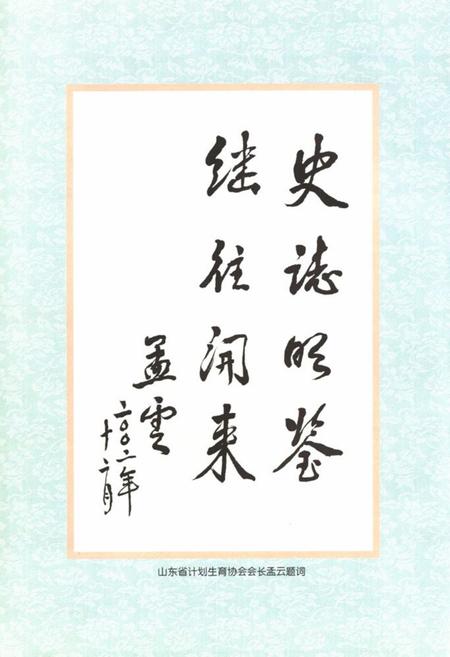 史誌明鉴
继往开来
孟雲
二〇〇二年
十二月
山东省计划生育协会会长孟云题词